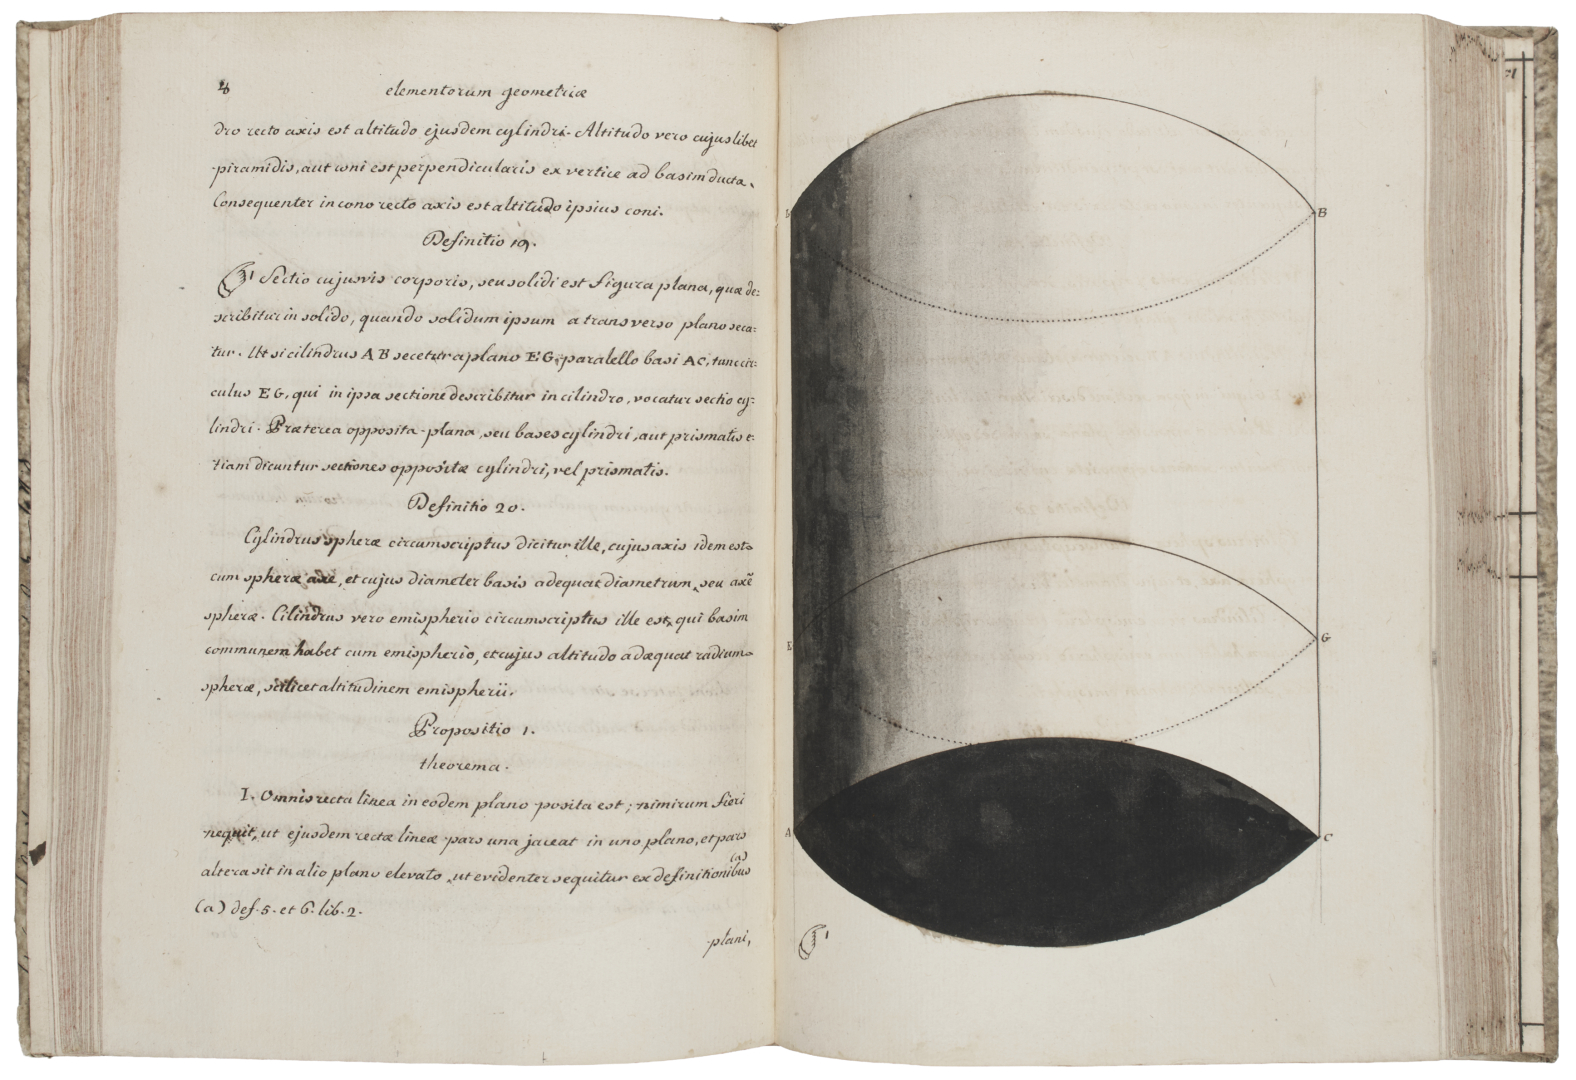 8
elementorum geometriæ
dro recto axis est altitudo ejusdem cylindri. Altitudo vero cujuslibet
piramidis, aut coni est perpendicularis ex vertice ad basim ducta.
Consequenter in cono recto axis est altitudo ipsius coni.
Definitio 19.
Sectio cujusvis corporis, seu solidi est figura plana, quæ de:
scribitur in solido, quando solidum ipsum a transverso plano seca:
tur. Ut si cilindrus AB secetur a plano EG, paralello basi AC, tunc cir:
culus EG, qui in ipsa sectione describitur in cilindro, vocatur sectio cy:
lindri. Præterea opposita plana, seu bases cylindri, aut prismatis e:
tiam dicuntur sectiones oppositæ cylindri, vel prismatis.
Definitio 20.
Cylindrus spheræ circumscriptus dicitur ille, cujus axis idem est
cum spheræ axe, et cujus diameter basis adequat diametrum, seu axẽ
spheræ. Cilindrus vero emispherio circumscriptus ille est, qui basim
communem habet cum emispherio, et cujus altitudo adæquat radium
spheræ, scilicet altitudinem emispherii.
Propositio 1.
theorema.
I. Omnis recta linea in eodem plano posita est; nimirum fieri
nequit, ut ejusdem rectæ lineæ pars una jaceat in uno plano, et pars
altera sit in alio plano elevato, ut evidenter sequitur ex definitionibus (a)
(a) def. 5. et 6. lib. 2.
plani,
B
E
G
A
C
1